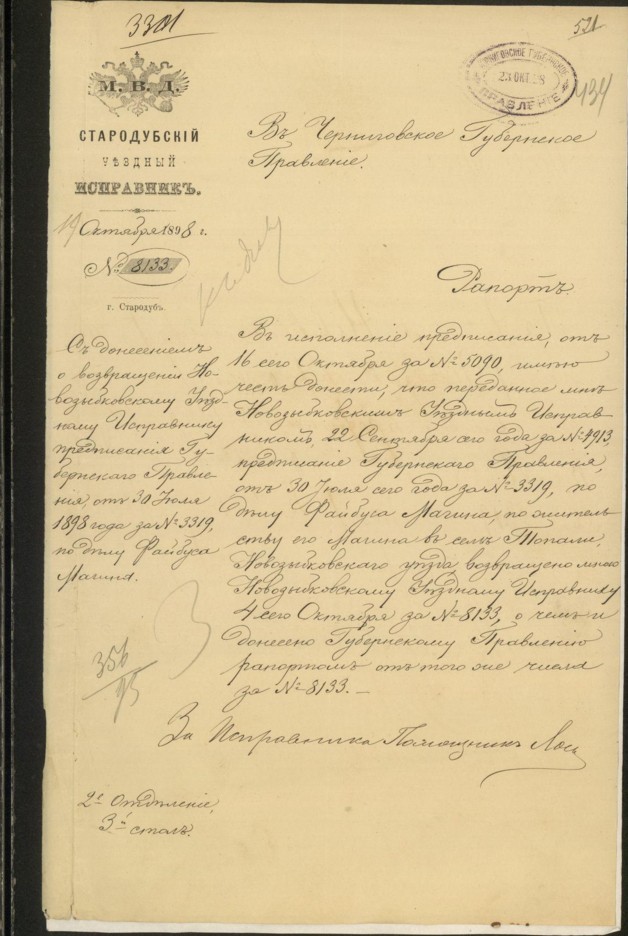 3301
521
М. В. Д.
СТАРОДУБСКІЙ
УѢЗДНЫЙ
ИСПРАВНИКЪ.
19 Октября 1898 г.
№ 8133.
г. Стародубъ.
ЧЕРНИГОВСКОЕ ГУБЕРНСКОЕ
23 ОКТ 98
ПРАВЛЕНІЕ
434
Въ Черниговское Губернское
Правленіе.
Рапортъ.
Съ донесеніемъ
о возвращеніи Но-
возыбковскому Уѣзд-
ному Исправнику
предписанія Гу-
бернскаго Правле-
нія, отъ 30 Іюля
1898 года за № 3319,
по дѣлу Файбуса
Магина.
Въ исполненіе предписанія, отъ
16 сего Октября за № 5090, имѣю
честь донести, что переданное мнѣ
Новозыбковскимъ Уѣзднымъ Исправ-
никомъ, 22 Сентября сего года за № 4913,
предписаніе Губернскаго Правленія,
отъ 30 Іюля сего года за № 3319, по
дѣлу Файбуса Магина, по житель-
ству его Магина въ селѣ Топали,
Новозыбковскаго уѣзда, возвращено мною
Новозыбковскому Уѣздному Исправнику
4 сего Октября за № 8133, о чемъ и
донесено Губернскому Правленію
рапортомъ отъ того же числа
за № 8133. —
356
93
За Исправника Помощникъ
2е Отдѣленіе,
3й столъ.